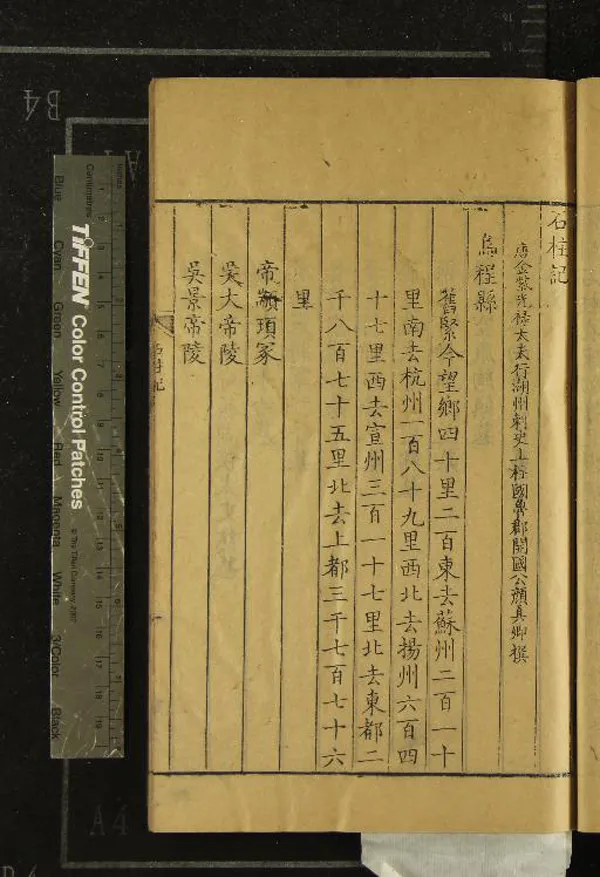 石柱記
唐金紫光祿大夫行湖州刺史上柱國魯郡開國公顏真卿撰
烏程縣
舊緊今望鄉四十里二百東去蘇州二百一十
里南去杭州一百八十九里西北去揚州六百四
十七里西去宣州三百一十七里北去東都二
千八百七十五里北去上都三千七百七十六
里
帝顓頊冢
吳大帝陵
吳景帝陵
石柱記
B4
A4
Inches
Centimetres
TIFFEN Color Control Patches
© The Tiffen Company, 2007
Blue
Cyan
Green
Yellow
Red
Magenta
White
3/Color
Black
A4